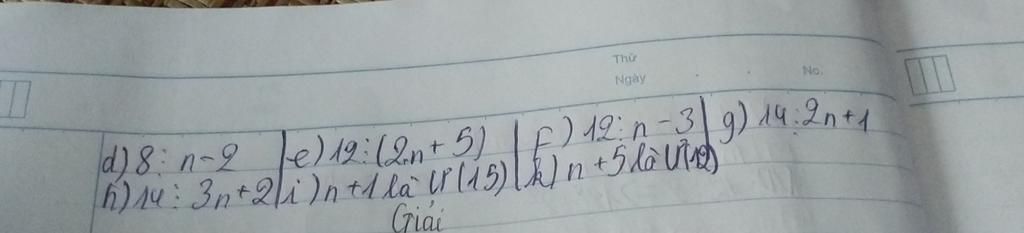 Thứ
Ngày
No.
d) 8 ⋮ n-2 | e) 12 ⋮ (2n + 5) | f) 12 ⋮ n - 3 | g) 14 ⋮ 2n + 1
h) 14 ⋮ 3n + 2 | i) n + 1 là Ư (15) | k) n + 5 là Ư(12)
Giải